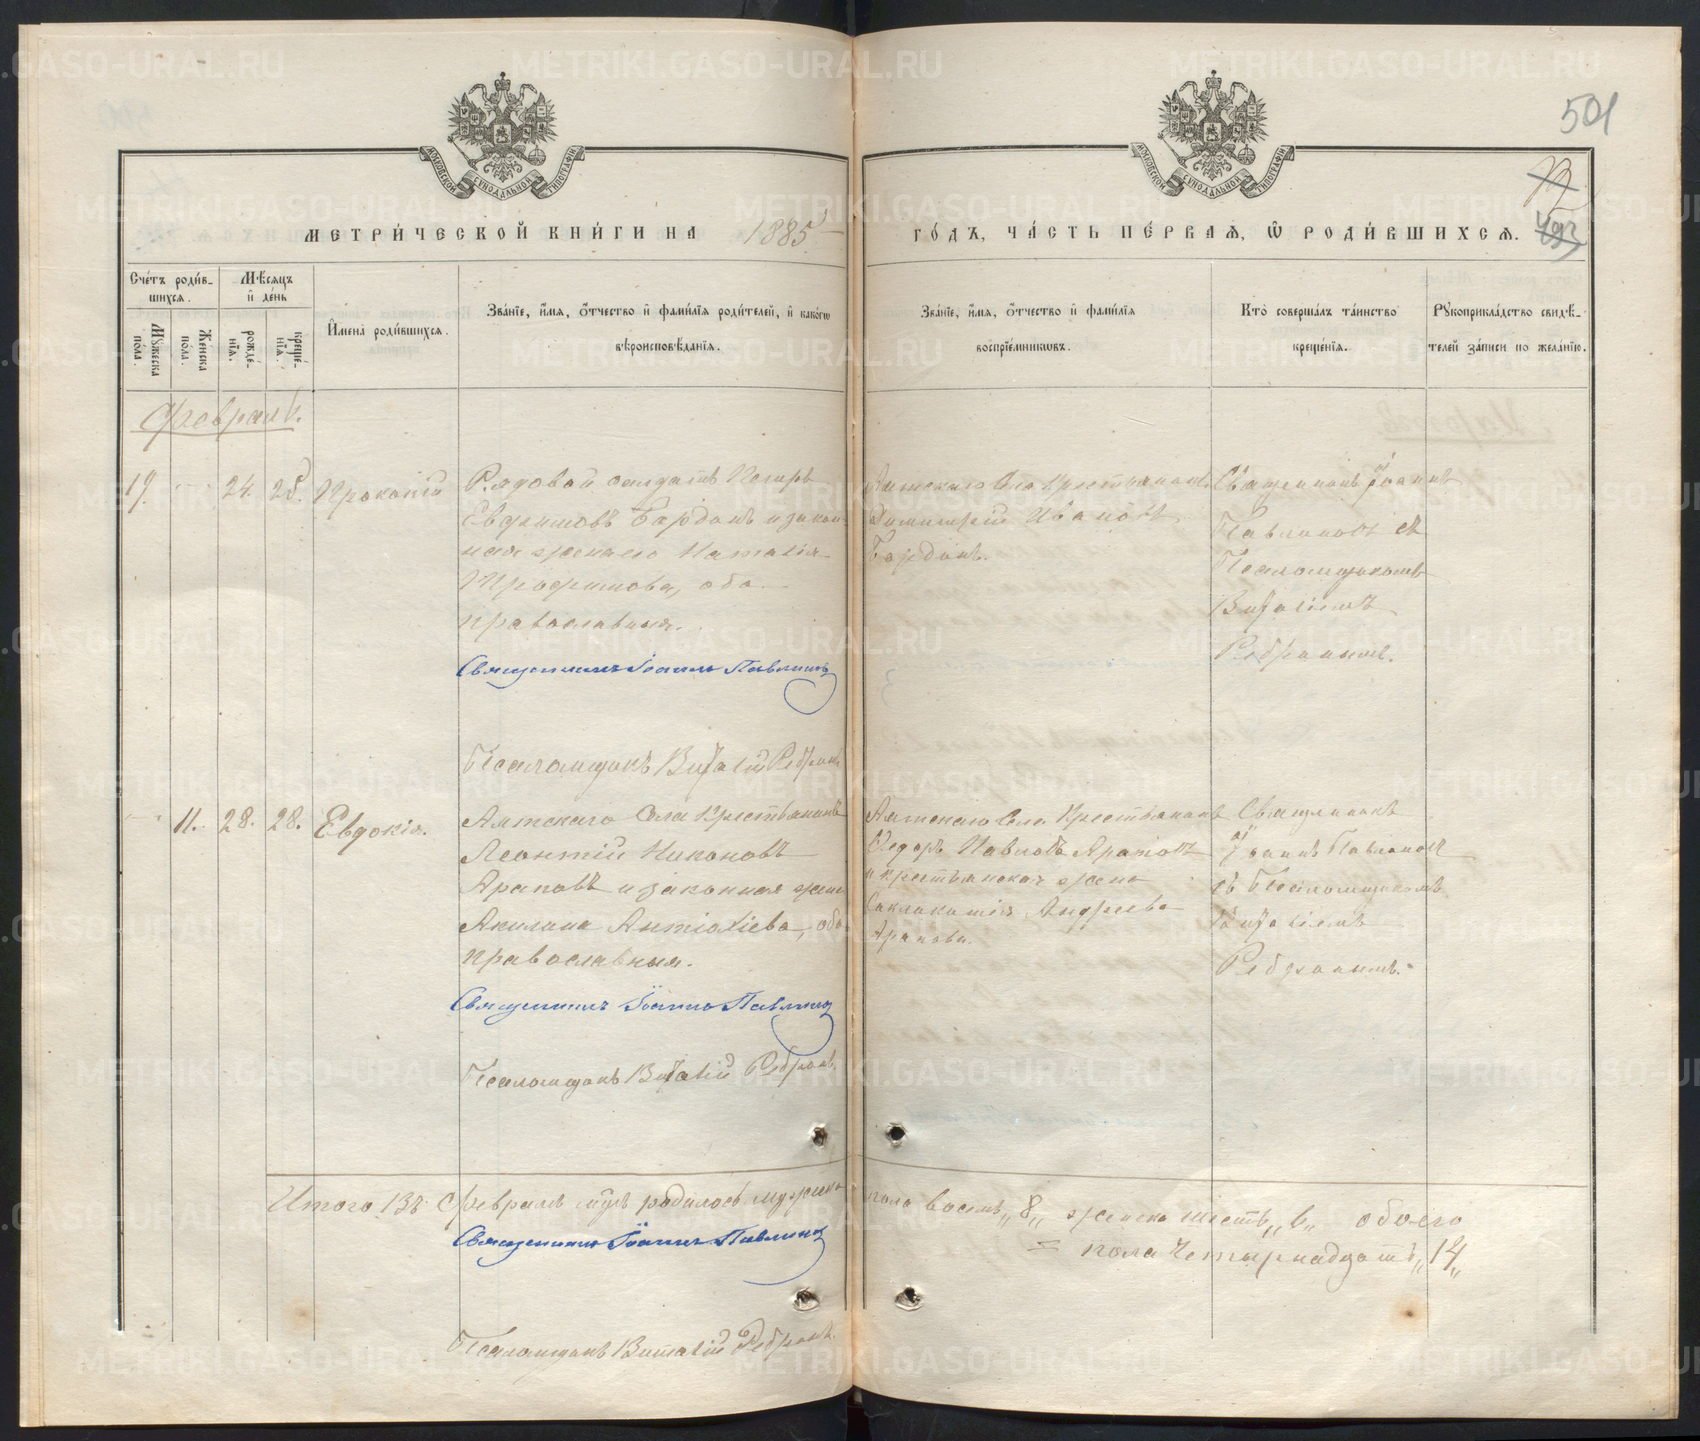 501
МОСКОВСКОЙ СѴНОДАЛЬНОЙ ТИПОГРАФІИ
МОСКОВСКОЙ СѴНОДАЛЬНОЙ ТИПОГРАФІИ
МЕТРИ́ЧЕСКОЙ КНИ́ГИ НА 1885 ГО́ДЪ, ЧА́СТЬ ПЕ́РВАЯ, Ѡ РОДИ́ВШИХСЯ.
493
Сче́тъ роди́в-
шихся.
Мѣ́сяцъ
и҆ де́нь
Му́жеска
по́ла.
Же́нска
по́ла.
рожде́-
нїя.
креще́-
нїя.
И҆мена̀ роди́вшихся.
Зва́нїе, и҆́мя, ѻ҆́тчество и҆ фами́лїя роди́телей, и҆ како́гѡ
вѣроисповѣ́данїя.
Зва́нїе, и҆́мя, ѻ҆́тчество и҆ фами́лїя
воспрїе́мникѡвъ.
Кто̀ соверша́лъ та́инство
креще́нїя.
Рꙋкоприкла́дство свидѣ́-
телей за́писи по жела́нїю.
Февраль.
19. 24. 25. Прокопій
Рядовой солдатъ Петръ
Евфимовъ Бардинъ и закон-
ная жена его Наталія
Трофимова, оба
православныя.
Священникъ Іоаннъ Павлиновъ
Псаломщикъ Виталій Ребринъ
Аятскаго Села Крестьянинъ
Димитрій Ивановъ
Бардинъ.
Священникъ Іоаннъ
Павлиновъ съ
Псаломщикомъ
Виталіемъ
11. 28. 28. Евдокія.
Аятскаго Села Крестьянинъ
Леонтій Никоновъ
Араповъ и законная жена
Акилина Антіохіева, оба
православныя.
Священникъ Іоаннъ Павлиновъ
Псаломщикъ Виталій
Аятскаго Села Крестьянинъ
Ѳедоръ Павловъ Араповъ
и крестьянская жена
Андреева
Арапова.
Священникъ
Іоаннъ Павлиновъ
съ Псаломщикомъ
Виталіемъ
Итого въ Февралѣ м-цѣ родилось мужска пола восемь „8„ женска шесть „6„ обоего
= пола четырнадцать „14„
Священникъ Іоаннъ Павлиновъ
Псаломщикъ Виталій
METRIKI.GASO-URAL.RU